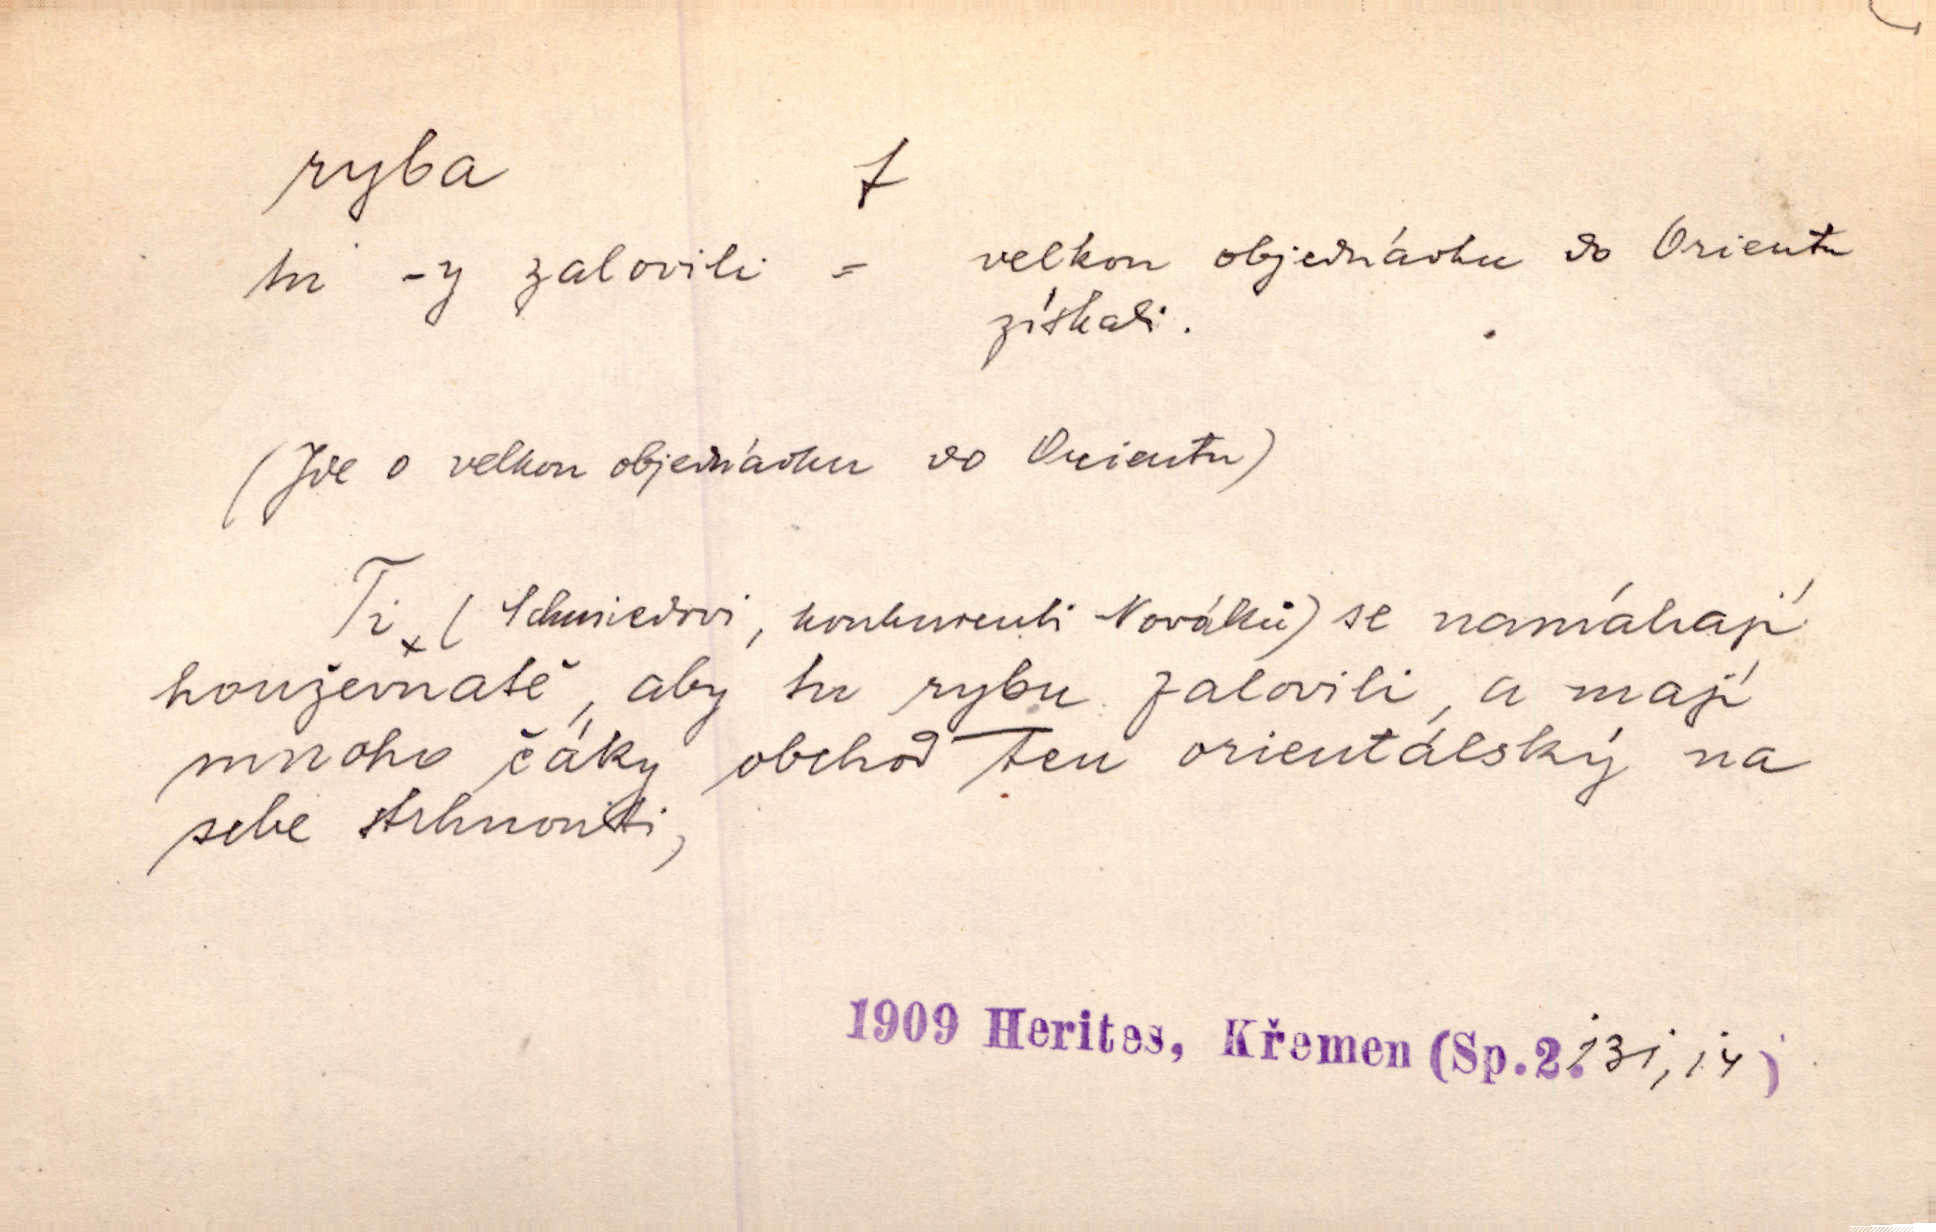 ryba f
tu -y zalovili = velkou objednávku do Orientu
získali.
(Jde o velkou objednávku do Orientu)
Ti x (Schmiedovi, konkurenti Nováků) se namáhají
houževnatě, aby tu rybu zalovili, a mají
mnoho čáky obchod ten orientálský na
sebe strhnouti,
1909 Herites, Křemen (Sp.2. 131, 14)